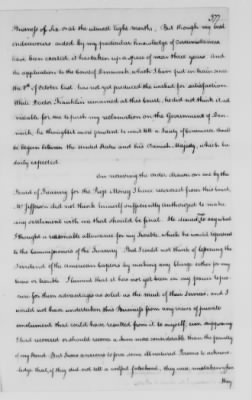 377
Business of six oral the utmost eight months. But though my best
endeavours aided by my particular knowledge of circumstances
have been exerted, it has taken up a space of near three years. And
the application to the Court of Denmark, which I have put in train since
the 8th of October last has not yet produced the method for satisfaction.
While Doctor Franklin remained at this Court, he did not think it ad-
visable for me to push my reclamation on the Government of Den-
mark, he thought it most prudent to wait till a Treaty of Commerce should
be begun between the United States and his Danish Majesty, which he
daily expected.
On receiving the order drawn on me by the
Board of Treasury for the Prize Money I have recovered from this Court,
Mr Jefferson did not think himself sufficiently authorized to make
any settlement with me that should be final. He desired to
I thought a reasonable allowance for my trouble which he would
to the Commissioners of the Treasury. But I could not think of lessening the
Dividend of the American Captors by making any charge either for my
time or trouble. I lament that it has not yet been in my power to procu-
re for them advantages as solid as the merit of their Services, and I
would not have undertaken this Business from any views of private
emolument that could have resulted from it to myself, even supposing
I had recovered or should recover a sum more considerable than the penalty
of my Bond. But I was anxious to force some ill natured Persons to acknow-
ledge that, if they did not tell a wilful falsehood, they were mistaken when
they